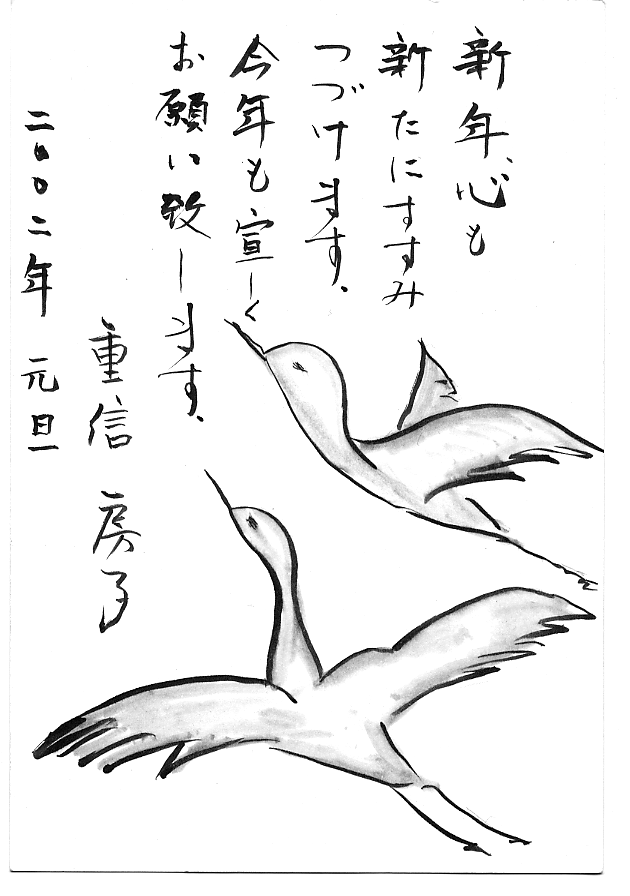 新年、心も
新たにすすみ
つづけます。
今年も宣しく
お願い致します。
重信 房子
二〇〇二年 元旦